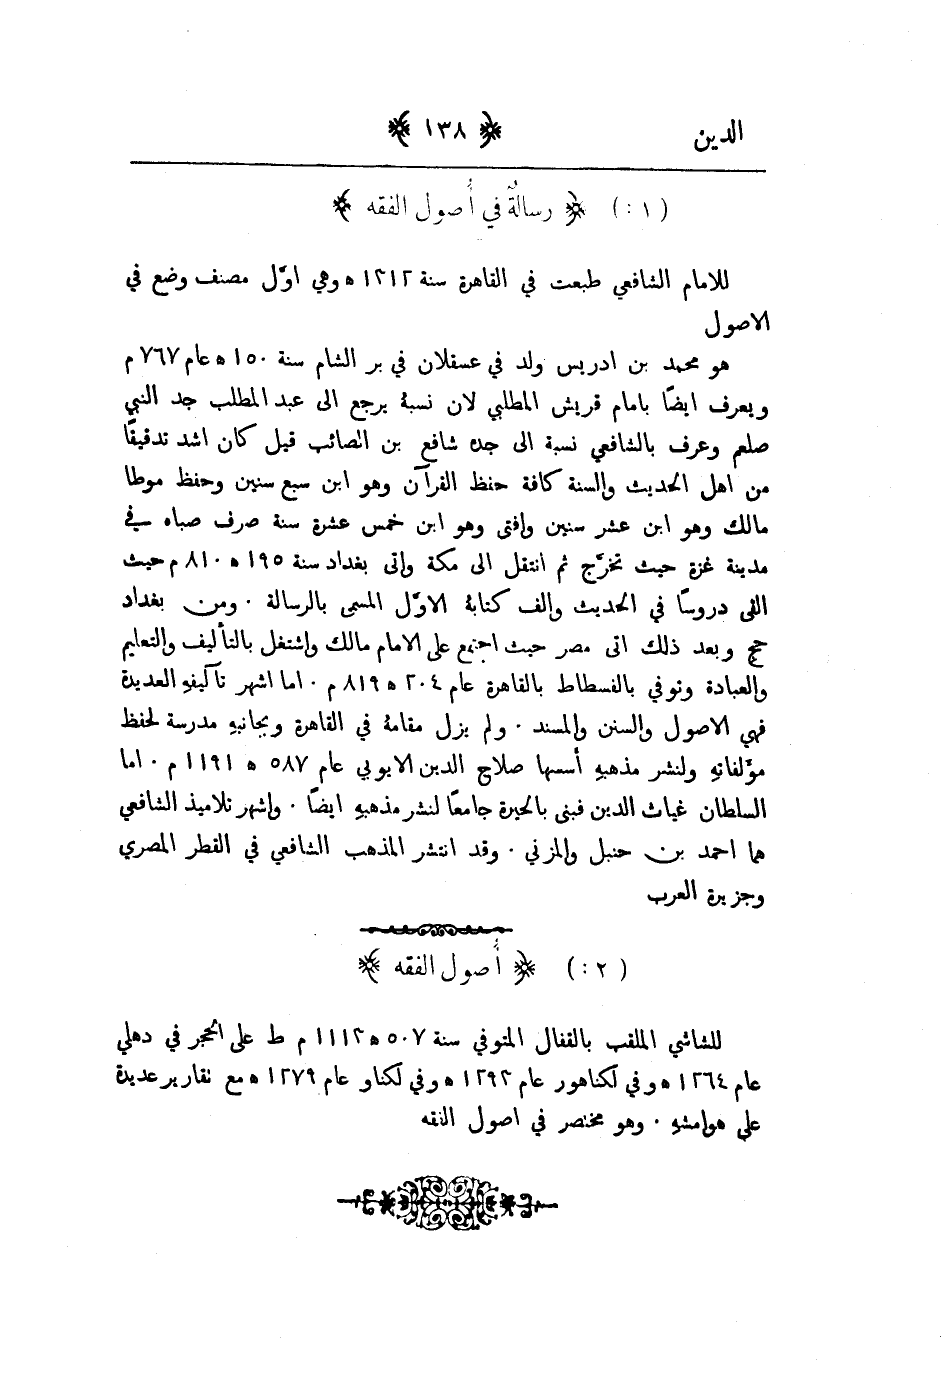 الدين
﴿ ١٣٨ ﴾
( ١ : ) ﴿ رسالةٌ في أُصول الفقه ﴾
للامام الشافعي طبعت في القاهرة سنة ١٣١٢ ه وهي اوَّل مصنف وضع في
الاصول
هو محمد بن ادريس ولد في عسقلان في بر الشام سنة ١٥٠ ه عام ٧٦٧ م
ويعرف ايضًا بامام قريش المطلبي لان نسبة يرجع الى عبد المطلب جد النبي
صلعم وعرف بالشافعي نسبة الى جده شافع بن الصائب قيل كان اشد تدقيقًا
من اهل الحديث والسنة كافة حفظ القرآن وهو ابن سبع سنين وحفظ موطا
مالك وهو ابن عشر سنين وافتى وهو ابن خمس عشرة سنة صرف صباه في
مدينة غزة حيث تخرَّج ثم انتقل الى مكة واتى بغداد سنة ١٩٥ ه ٨١٠ م حيث
القى دروسًا في الحديث والف كتابة الاوَّل المسمى بالرسالة ٠ ومن بغداد
حج وبعد ذلك اتى مصر حيث اجتمع على الامام مالك واشتغل بالتأليف والتعليم
والعبادة وتوفي بالفسطاط بالقاهرة عام ٢٠٤ ه ٨١٩ م ٠ اما اشهر تآليفهِ العديدة
فهي الاصول والسنن والمسند ٠ ولم يزل مقامة في القاهرة وبجانبهِ مدرسة لحفظ
مؤلفاتهِ ولنشر مذهبهِ أسسها صلاح الدين الايوبي عام ٥٨٧ ه ١١٩١ م ٠ اما
السلطان غياث الدين فبنى بالحيرة جامعًا لنشر مذهبهِ ايضًا ٠ واشهر تلاميذ الشافعي
هما احمد بن حنبل والمزني ٠ وقد انتشر المذهب الشافعي في القطر المصري
وجزيرة العرب
( ٢ : ) ﴿ أُصول الفقه ﴾
للشاشي الملقب بالقفال المتوفي سنة ٥٠٧ ه ١١١٣ م ط على الحجر في دهلي
عام ١٢٦٤ ه وفي لكناهور عام ١٢٩٣ ه وفي لكناو عام ١٢٧٩ ه مع تقارير عديدة
على هوامشهِ ٠ وهو مختصر في اصول الفقه